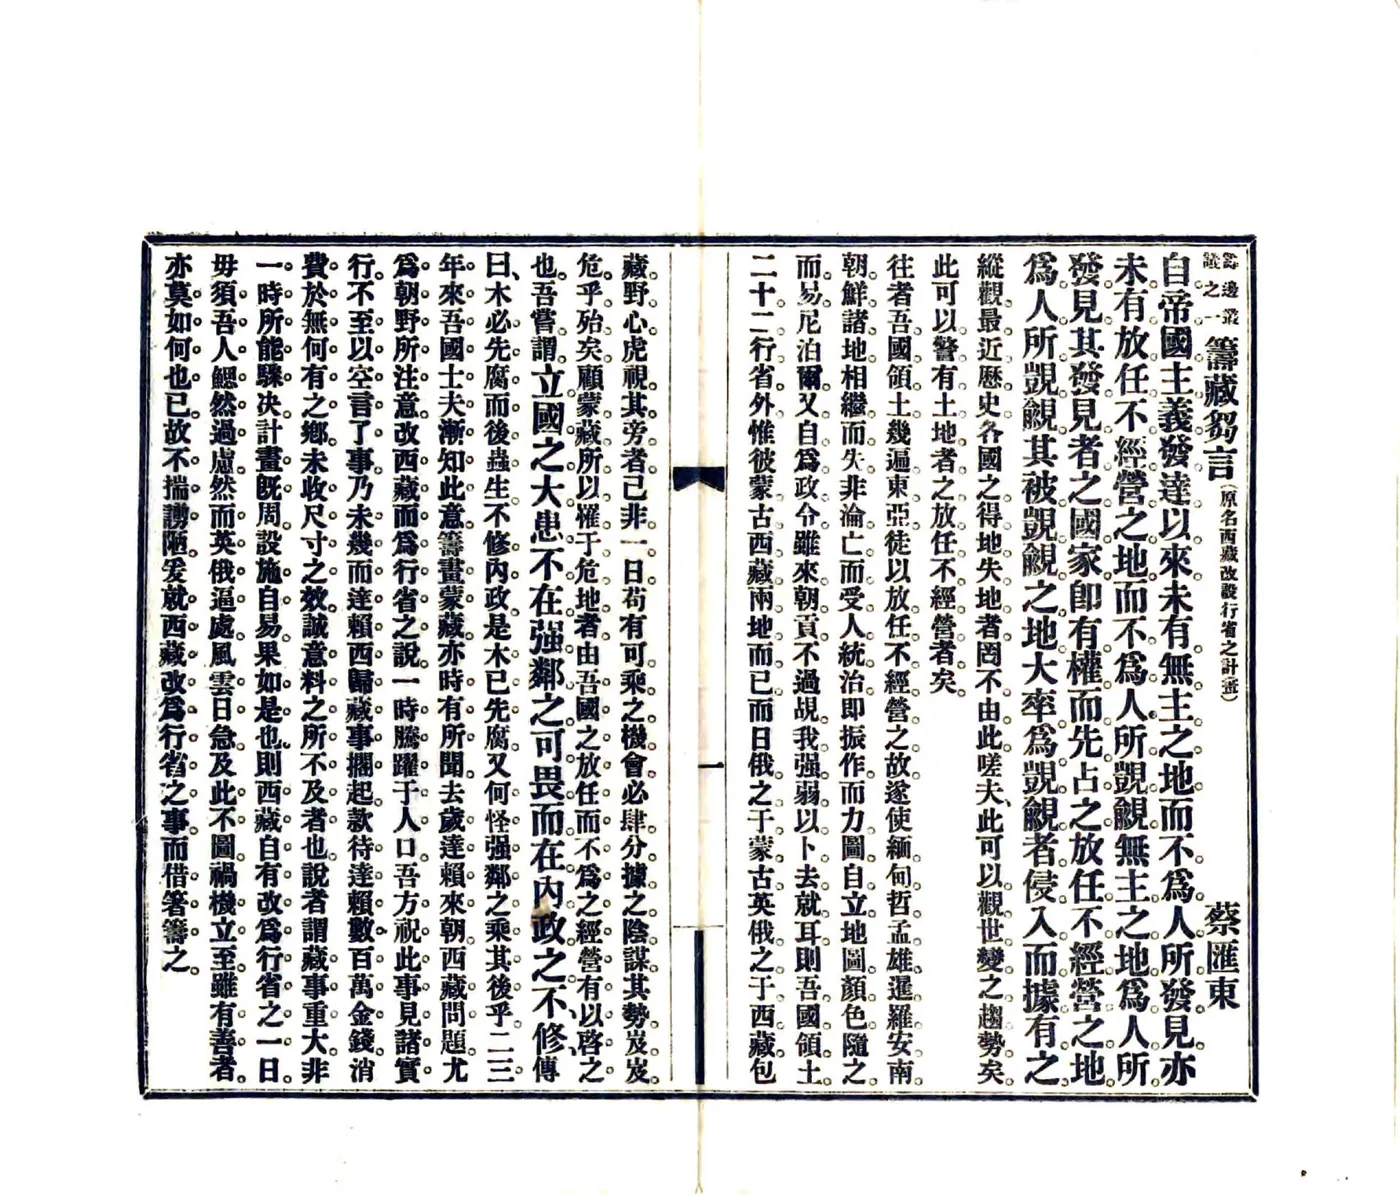 籌邊叢議之一 籌藏芻言(原名西藏改設行省之計畫) 蔡匯東
自帝國主義發達以來未有無主之地而不爲人所發見亦
未有放任不經營之地而不爲人所覬覦無主之地爲人所
發見其發見者之國家卽有權而先占之放任不經營之地
爲人所覬覦其被覬覦之地大率爲覬覦者侵入而據有之
縱觀最近歷史各國之得地失地者罔不由此嗟夫此可以觀世變之趨勢矣
此可以警有土地者之放任不經營者矣
往者吾國領土幾遍東亞徒以放任不經營之故遂使緬甸哲孟雄暹羅安南
朝鮮諸地相繼而失非淪亡而受人統治即振作而力圖自立地圖顏色隨之
而易尼泊爾又自爲政令雖來朝貢不過覘我强弱以卜去就耳則吾國領土
二十二行省外惟彼蒙古西藏兩地而已而日俄之于蒙古英俄之于西藏包
藏野心虎視其旁者已非一日苟有可乘之機會必肆分據之陰謀其勢岌岌
危乎殆矣顧蒙藏所以罹于危地者由吾國之放任而不爲之經營有以啓之
也吾嘗謂立國之大患不在强鄰之可畏而在內政之不修傳
曰木必先腐而後蟲生不修內政是木已先腐又何怪强鄰之乘其後乎二三
年來吾國士夫漸知此意籌畫蒙藏亦時有所聞去歲達賴來朝西藏問題尤
爲朝野所注意改西藏而爲行省之說一時騰躍于人口吾方祝此事見諸實
行不至以空言了事乃未幾而達賴西歸藏事擱起款待達賴數百萬金錢消
費於無何有之鄉未收尺寸之效誠意料之所不及者也說者謂藏事重大非
一時所能驟决計畫旣周設施自易果如是也則西藏自有改爲行省之一日
毋須吾人鰓然過慮然而英俄逼處風雲日急及此不圖禍機立至雖有善者
亦莫如何也已故不揣譾陋爰就西藏改爲行省之事而借箸籌之
一